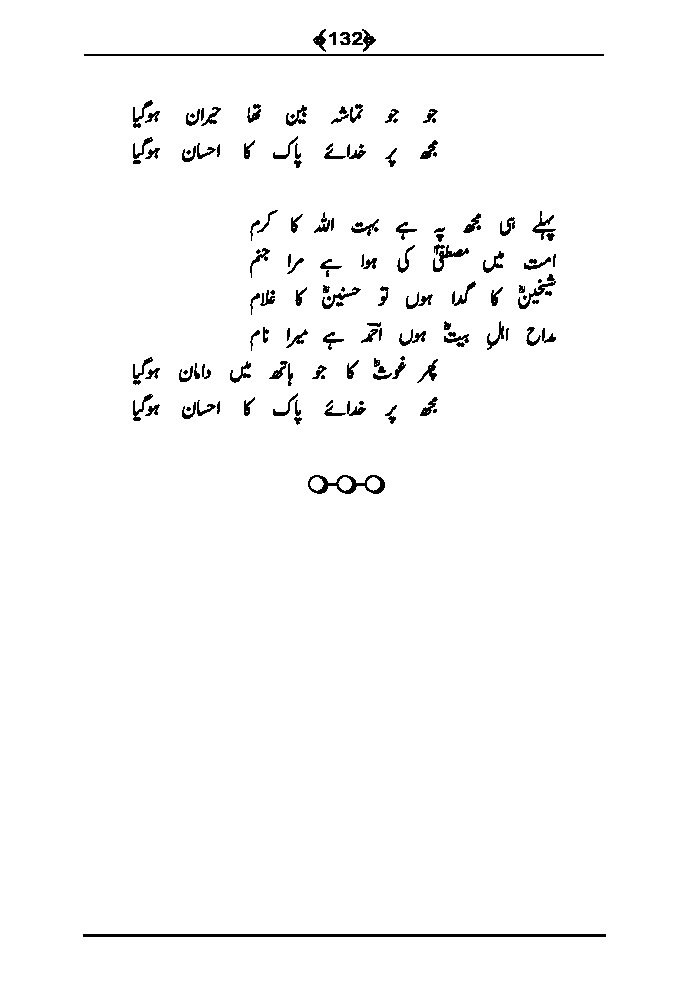 ﴿132﴾
جو جو تماشہ بین تھا حیران ہوگیا
مجھ پر خدائے پاک کا احسان ہوگیا
پہلے ہی مجھ پہ ہے بہت اللہ کا کرم
امت میں مصطفیٰؐ کی ہوا ہے مرا جنم
شیخینؓ کا گدا ہوں تو حسنینؓ کا غلام
مداح اہلِ بیتؓ ہوں احمدؔ ہے میرا نام
پھر غوثؓ کا جو ہاتھ میں دامان ہوگیا
مجھ پر خدائے پاک کا احسان ہوگیا